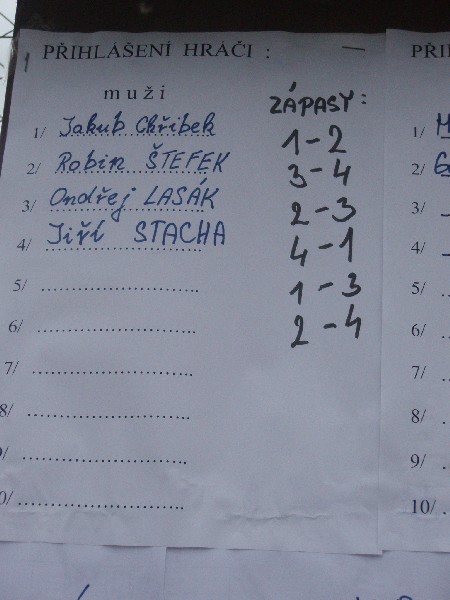 PŘIHLÁŠENÍ HRÁČI :
muži
ZÁPASY :
1/ Jakub Chřibek
2/ Robin ŠTEFEK
3/ Ondřej LASÁK
4/ Jiří STACHA
5/
6/
7/
8/
9/
0/
1-2
3-4
2-3
4-1
1-3
2-4
PŘI
1/
2/
3/
4/
5/
6/
7/
8/
9/
10/